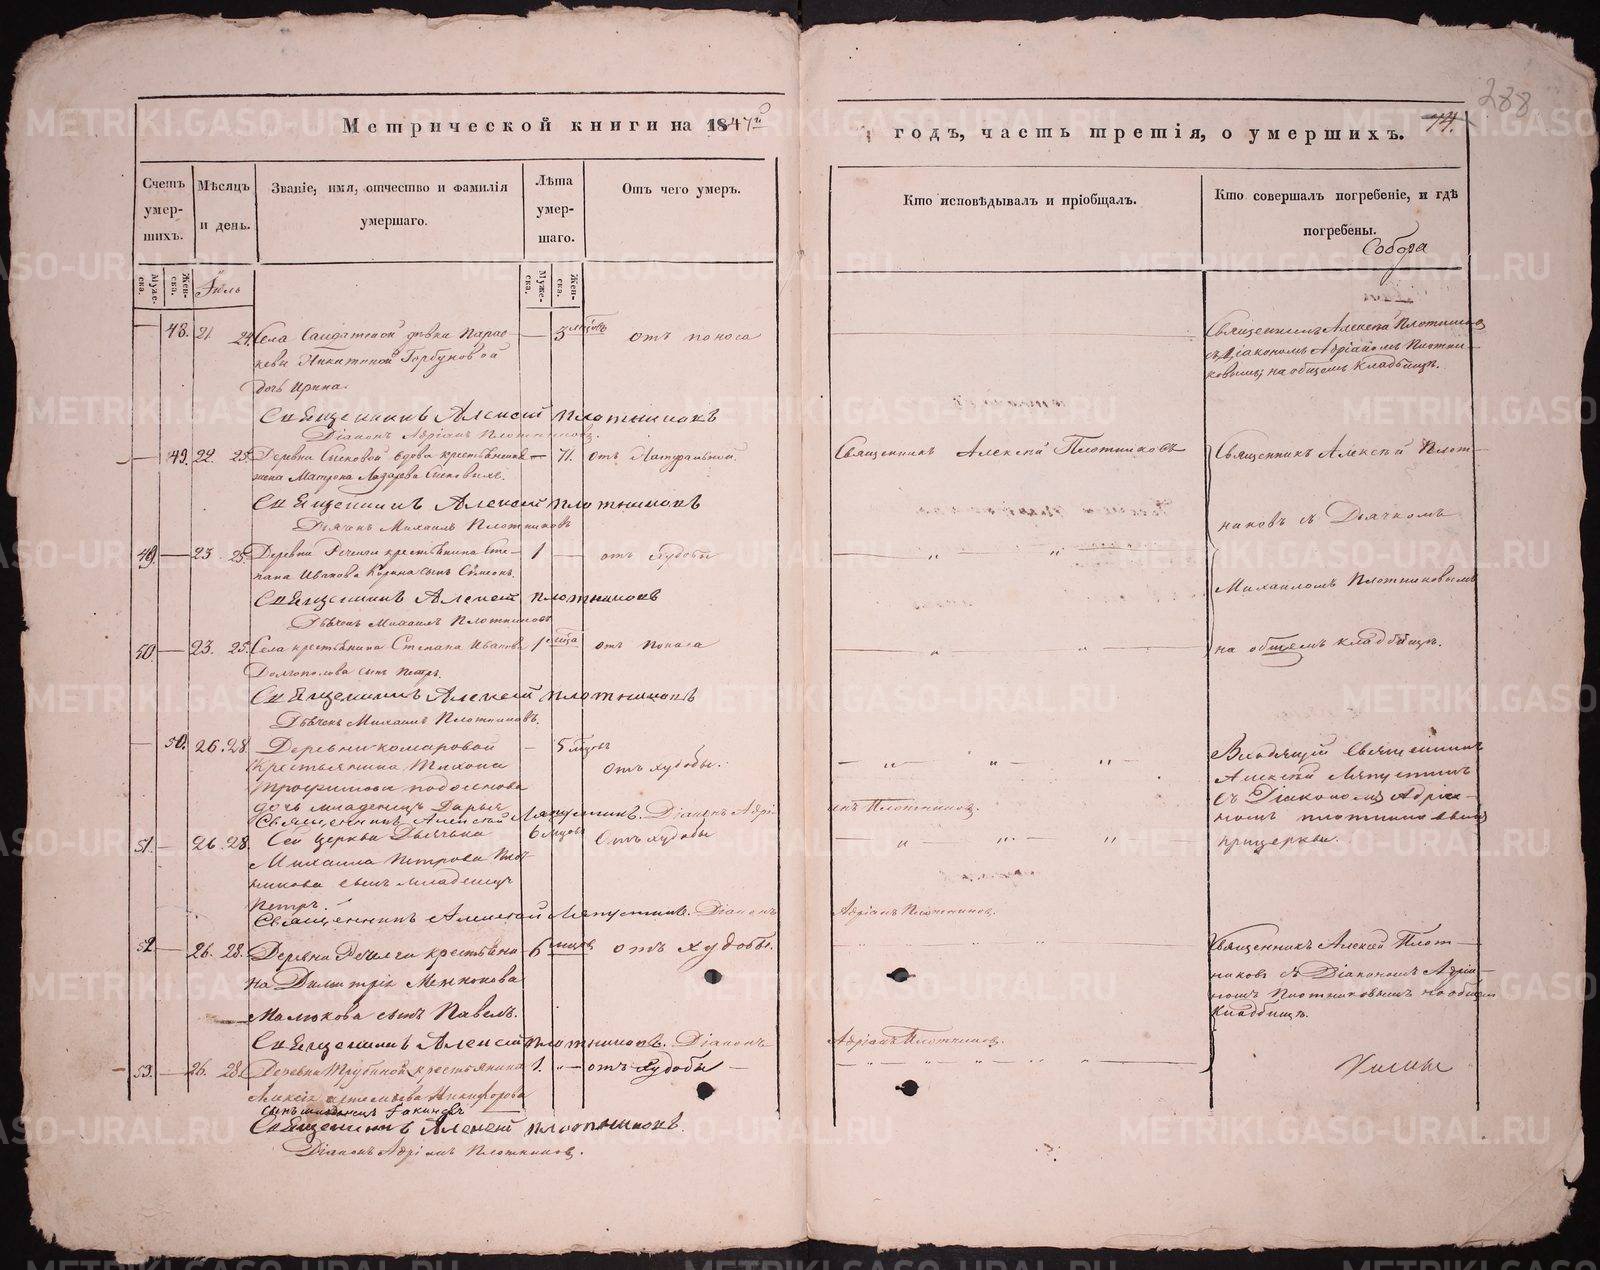 288
Метрической книги на 1847й
годъ, часть третія, о умершихъ.
74.
Счетъ умер-шихъ.
Мѣсяцъ и день.
Званіе, имя, отчество и фамилія умершаго.
Лѣта умер-шаго.
Отъ чего умеръ.
Кто исповѣдывалъ и пріобщалъ.
Кто совершалъ погребеніе, и гдѣ погребены.
Муже-ска.
Жен-ска.
Іюль
Муже-ска.
Жен-ска.
48. 21 24. Села
дѣвки Парас-
кевы Никитиной Горбуновой
дочь Ирина.
отъ поноса
Священникъ Алексѣй Плотниковъ
съ Діакономъ Адріаномъ Плотни-
ковымъ, на общемъ кладбищѣ.
Священникъ Алексѣй Плотниковъ
Діаконъ Адріанъ Плотниковъ.
49. 22. 25. Деревни вдова крестьянская
жена Матрона Лазарева
71. отъ Натуральной
Священникъ Алексѣй Плотниковъ
Священникъ Алексѣй Плот-
никовъ съ Дьячкомъ
Михаиломъ Плотниковымъ
на общемъ кладбищѣ.
Священникъ Алексѣй Плотниковъ
Дьячекъ Михаилъ Плотниковъ
49. 23 25. Деревни Реченги крестьянина Сте-
пана Иванова сынъ Симеонъ.
1 отъ худобы
Священникъ Алексѣй Плотниковъ
Дьячекъ Михаилъ Плотниковъ
50. 23. 25. Села крестьянина Степана Иванова
Долгополова сынъ Петръ.
1 мѣсяца отъ поноса
Священникъ Алексѣй Плотниковъ
Дьячекъ Михаилъ Плотниковъ.
50. 26. 28. Деревни Комаровой
крестьянина Тихона
Трофимова
дочь младенецъ Дарья
5 мѣсяцовъ
отъ худобы.
Священникъ Алексѣй Ляпустинъ. Діаконъ Адрі-
анъ Плотниковъ.
Священникъ
Алексѣй Ляпустинъ
съ Діакономъ Адріа-
номъ Плотниковымъ
при церкви.
51. 26. 28. Сей церкви Дьячька
Михаила Петрова Плот-
никова сынъ младенецъ
Петръ.
6 мѣсяцовъ
Отъ худобы
Священникъ Алексѣй Ляпустинъ. Діаконъ
Адріанъ Плотниковъ.
52 26. 28. Деревни Реченги крестьяни-
на Димитрія
Малькова сынъ Павелъ.
6 мѣсяцовъ отъ худобы.
Священникъ Алексѣй Плот-
никовъ съ Діакономъ Адріа-
номъ Плотниковымъ на общемъ
кладбищѣ.
Священникъ Алексѣй Плотниковъ. Діаконъ
Адріанъ Плотниковъ.
53. 26. 28. Деревни Трубиной крестьянина
Алексія Артемьева Никифорова
сынъ младенецъ Іакинфъ
1. отъ худобы
Священникъ Алексѣй Плотниковъ.
Діаконъ Адріанъ Плотниковъ.
METRIKI.GASO-URAL.RU